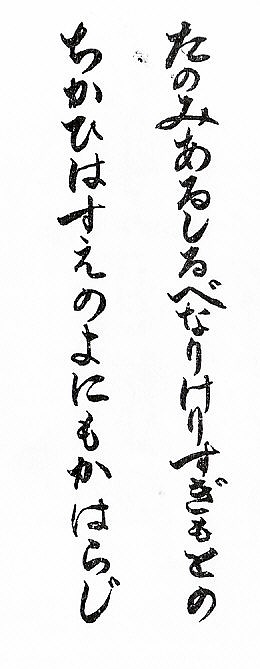 たのみあるしるべなりけりすぎもとの
ちかひはすえのよにもかはらじ